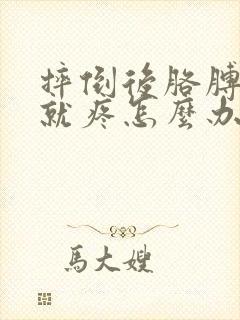 摔倒後胳膊
就疼怎麼办
馬大嫂